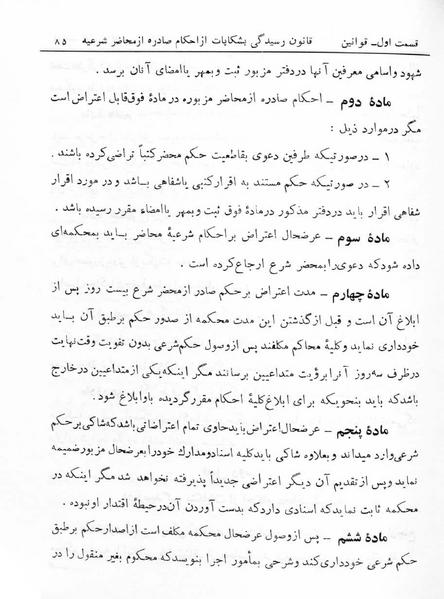 قسمت اول ـ قوانین قانون رسیدگی بشکایات از احکام صادره از محاضر شرعیه ۸۵
شهود و اسامی معرفین آنها در دفتر مزبور ثبت و بمهر یا امضای آنان برسد .
مادهٔ دوم ـ احکام صادره از محاضر مزبوره در مادهٔ فوق قابل اعتراض است
مگر در موارد ذیل :
۱ ـ در صورتیکه طرفین دعوی بقاطعیت حکم محضر کتباً تراضی کرده باشند .
۲ ـ در صورتیکه حکم مستند به اقرار کتبی یا شفاهی باشد و در مورد اقرار
شفاهی اقرار باید در دفتر مذکور در مادهٔ فوق ثبت و بمهر یا امضاء مقرر رسیده باشد .
مادهٔ سوم ـ عرضحال اعتراض بر احکام شرعیهٔ محاضر باید بمحکمه‌ای
داده شود که دعوی را بمحضر شرع ارجاع کرده است .
مادهٔ چهارم ـ مدت اعتراض بر حکم صادر از محضر شرع بیست روز پس از
ابلاغ آن است و قبل از گذشتن این مدت محکمه از صدور حکم بر طبق آن باید
خودداری نماید و کلیهٔ محاکم مکلفند پس از وصول حکم شرعی بدون تفویت وقت نهایت
در ظرف سه روز آنرا برؤیت متداعیین برسانند مگر اینکه یکی از متداعیین در خارج
باشد که باید بنحویکه برای ابلاغ کلیهٔ احکام مقرر گردیده باو ابلاغ شود .
مادهٔ پنجم ـ عرضحال اعتراض باید حاوی تمام اعتراضاتی باشد که شاکی بر حکم
شرعی وارد میداند و بعلاوه شاکی باید کلیه اسناد و مدارک خود را بعرضحال مزبور ضمیمه
نماید و پس از تقدیم آن دیگر اعتراضی جدیداً پذیرفته نخواهد شد مگر اینکه در
محکمه ثابت نماید که اسنادی دارد که بدست آوردن آن در حیطهٔ اقتدار او نبوده .
مادهٔ ششم ـ پس از وصول عرضحال محکمه مکلف است از اصدار حکم بر طبق
حکم شرعی خودداری کند و شرحی بمأمور اجرا بنویسد که محکوم بغیر منقول را در